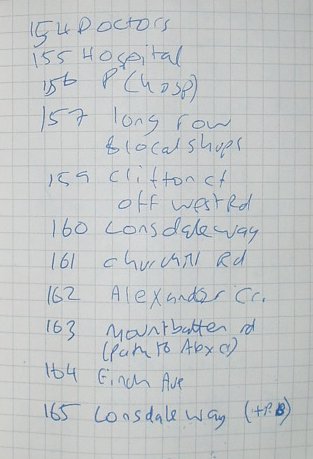 154 Doctors
155 Hospital
156 P (hosp)
157 long row
& local shops
159 Clifton ct
off west Rd
160 Lonsdale way
161 Churchill Rd
162 Alexander Cr.
163 Mountbatten rd
(Path to Alex Cr)
164 Finch Ave
165 Lonsdale way (+P.B)